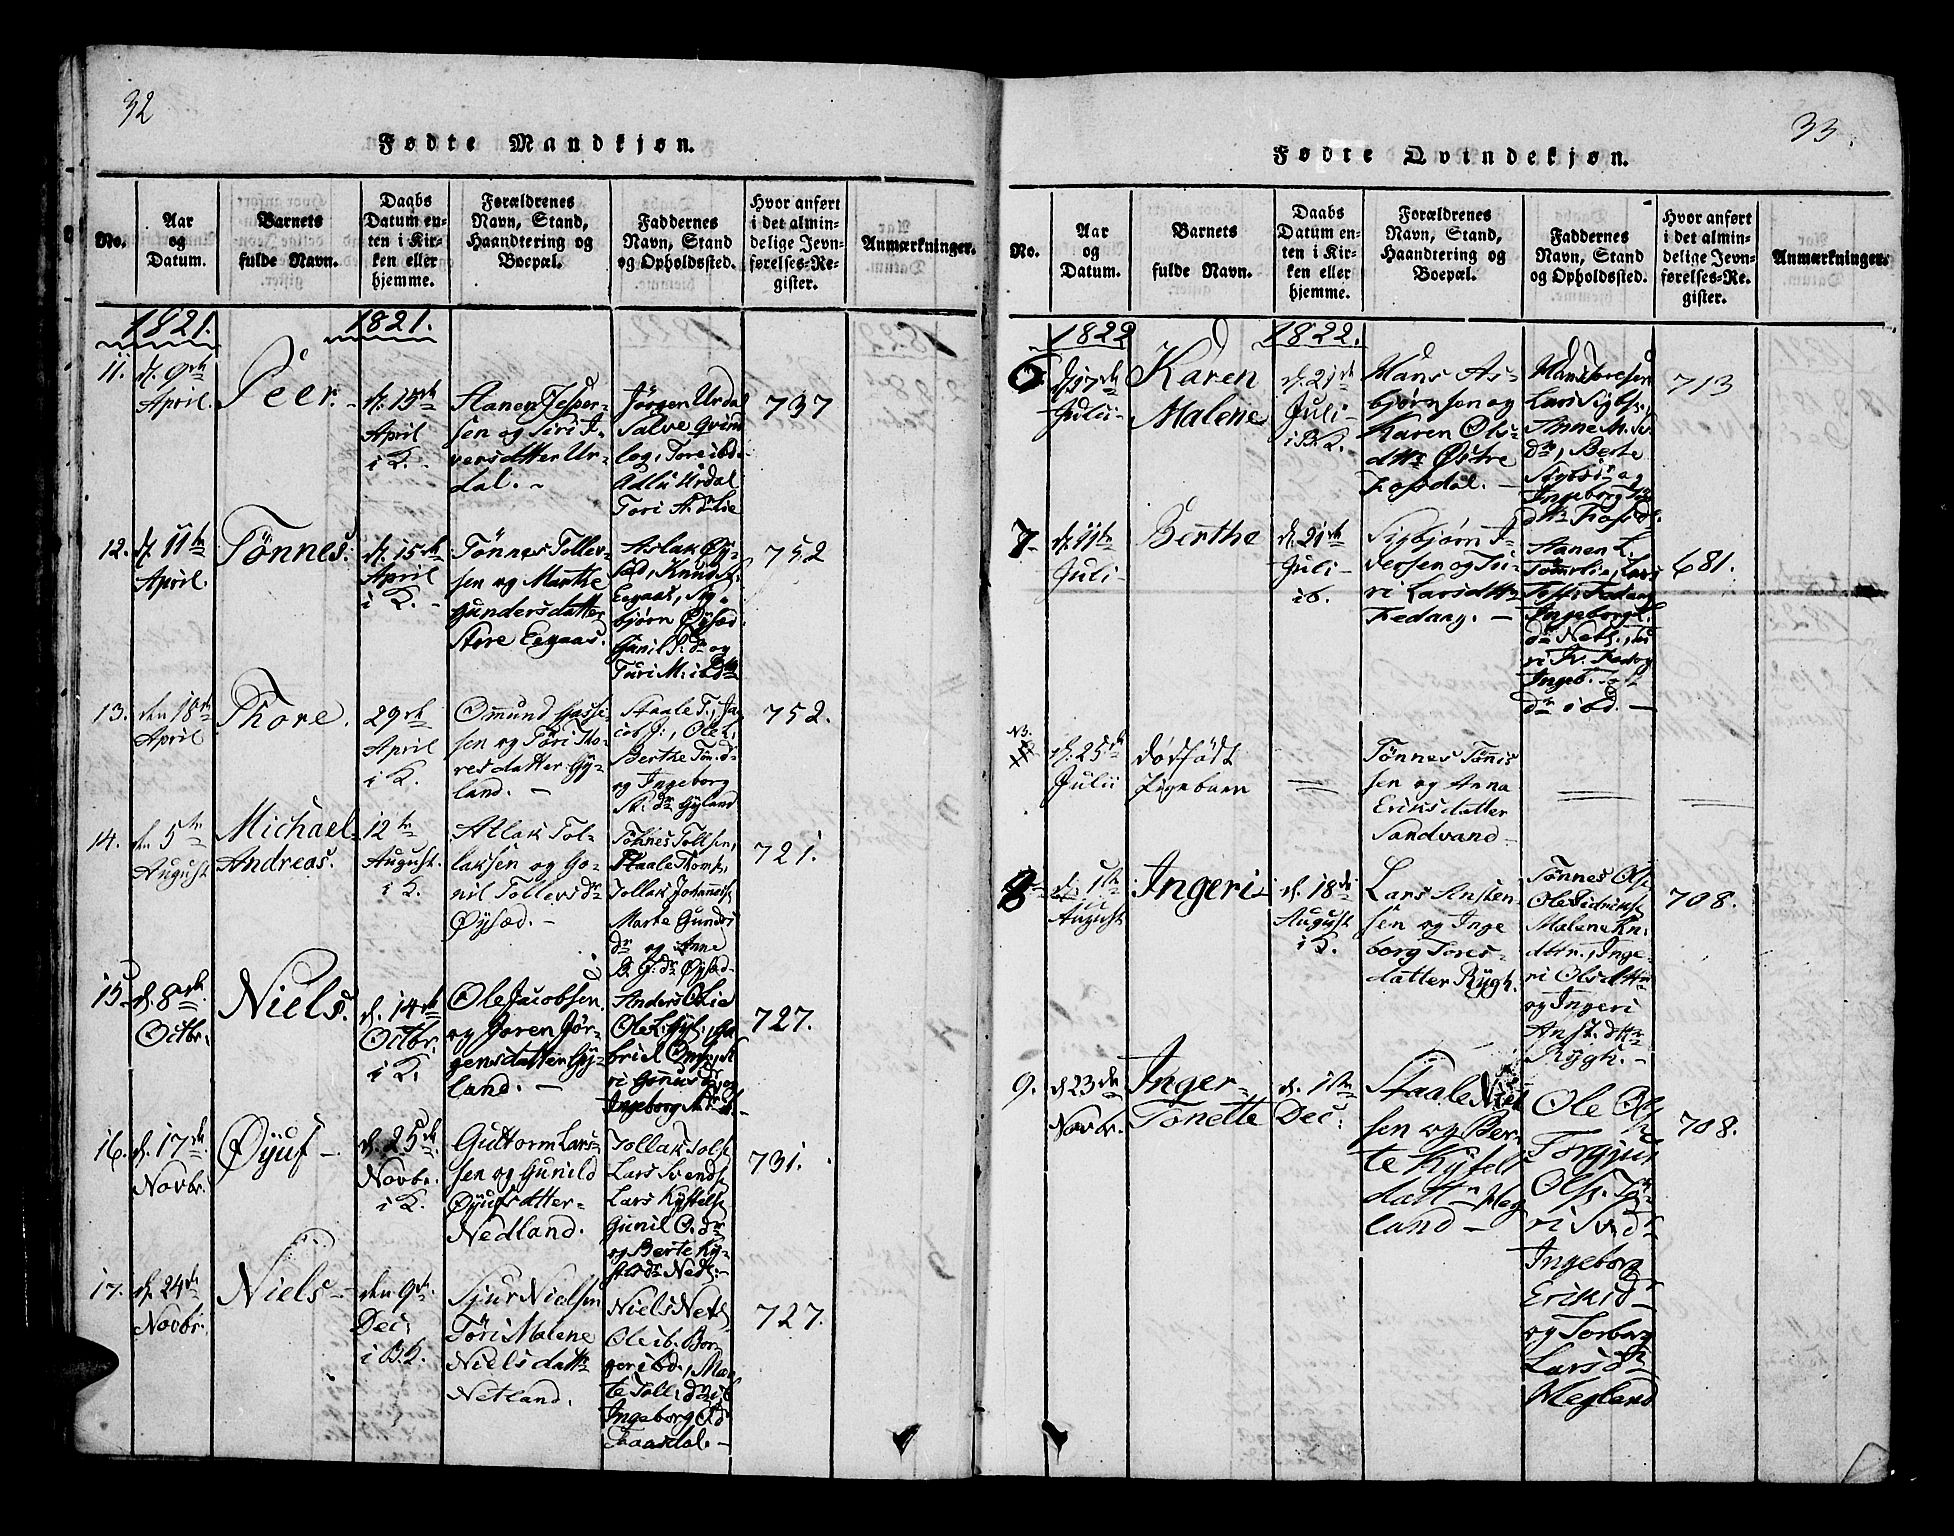 32
Fødte Mandkjøn.
No.
Aar
og
Datum.
Barnets
fulde Navn.
Daabs
Datum en-
ten i Kir-
ken eller
hjemme.
Forældrenes
Navn, Stand,
Haandtering og
Boepæl.
Faddernes
Navn, Stand
og Opholdssted.
Hvor anført
i det almin-
delige Jevn-
førelses-Re-
gister.
Anmærkninger.
1821.
1821.
11.
d. 9de
April.
Peer.
d. 15de
April
i K.
Hanen Jesper-
sen og Siri I-
versdatter Ur-
dal.
Jörgen Urdal
Salve Qvind
log, Tore ibd.
Adlu Urdal
Tori A.dr Lie
737
12.
d. 11te
April.
Tönnes.
d. 15de
April
i K.
Tönnes Tollev-
sen og Marthe
Gundersdatter
Store Eegaas.
Aslak Öy-
sæd, Knud S.
Eegaas, Sig-
bjørn Öysæd
Gunil T. dr og
Turi M: ibd
752
13.
den 18de
April
Thore.
29de
April
i K.
Omund Hasse-
sen og Töri Tho-
resdatter Gy-
land.
Staale T., Ja-
cob J:, Ole L.
Berthe Ton.dr
og Ingeborg
St: dr Gyland
752.
14.
den 5te
August
Michael
Andreas.
12te
August.
i K.
Atlak Tol-
laksen og Go-
nil Tollevs dr
Öysæd.
Tönnes Tollsen,
Staale Thoms.
Tollak Johannis.
Marte Gunders
dr og Anne
G. J: dr Öysæd
721.
15
d. 8de
Octbr.
Niels.
d. 14de
Octbr.
i K.
Ole Jacobsen
og Joren Jör-
gensdatter Gy-
land.
Anders O. Lie
Ole L: Gyl:, Ga
briel Om
ri Gunusdr og
Ingeborg
727.
16.
d. 17de
Novbr.
Öyuf
d. 25de
Novbr.
i K.
Guttorm Lars-
sen og Gunild
Öyufsdatter
Nedland.
Tollak Tols
Lars Svends.
Lars Kyttels
Gunil O. dr
og Berte Ky-
tels dr Nedl:
731.
17.
d. 24de
Novbr.
Niels
den 9de
Dec:
i B.K.
Sjur Nielsen
Töri Malene
Niels datter
Netland.
Niels Netl.
Ole ib. Bor-
ger ibd., Mar-
te Toll: dr ib
Ingeborg
Faasdal.
727.
33.
Fødte Qvindekjøn.
No.
Aar
og
Datum.
Barnets
fulde Navn.
Daabs
Datum en-
ten i Kir-
ken eller
hjemme.
Forældrenes
Navn, Stand,
Haandtering og
Boepæl.
Faddernes
Navn, Stand
og Opholdssted.
Hvor anført
i det almin-
delige Jevn-
førelses-Re-
gister.
Anmærkninger.
1822
1822.
6
d. 17de
Julii
Karen
Malene
d. 21de
Juli
i K.
Hans As-
bjørnsen og
Karen Ols-
dttr Østre
Fosdal.
Hans Toresen
Lars Sigbs.
Anne M. S.
dr, Berte
Sigbs dr og
Ingeborg
dttr Fosd.
713
7
d. 11te
Juli
Berthe
d. 21de
Juli
ib.
Sigbjørn I-
versen og Tu-
ri Larsdttr
Fedaag.
Hanen L.
Tomelie, Lars
Toss: Fedaag
Ingeborg L.
dr Netl., Tu
ri Fedog
Ingeb.
dr ibd.
681.
NB.
d. 25de
Julii
dødfødt
Pigebarn
Tönnes Tönis
sen og Anna
Eriksdatter
Sandvand
8
d. 1ste
August
Ingeri
d. 18de
August
i K.
Lars Ansten-
sen og Inge
borg Tores-
datter Rygh.
Tönnes Ols.
Ole
Malene Kn:
dttr., Inge-
ri Olsdttr
og Ingeri
Anst. dttr
Rygh.
708.
9.
d. 23de
Novbr.
Inger
Tonette
d. 1ste
Dec:
Staale Niel
sen og Ber-
te Kytels
datter Meg
land
Ole Ols
Torgjus
Ols. Ty-
ri Sv.dr
Ingeborg
Eriksd
og Torborg
Lars dr
Megland
708.